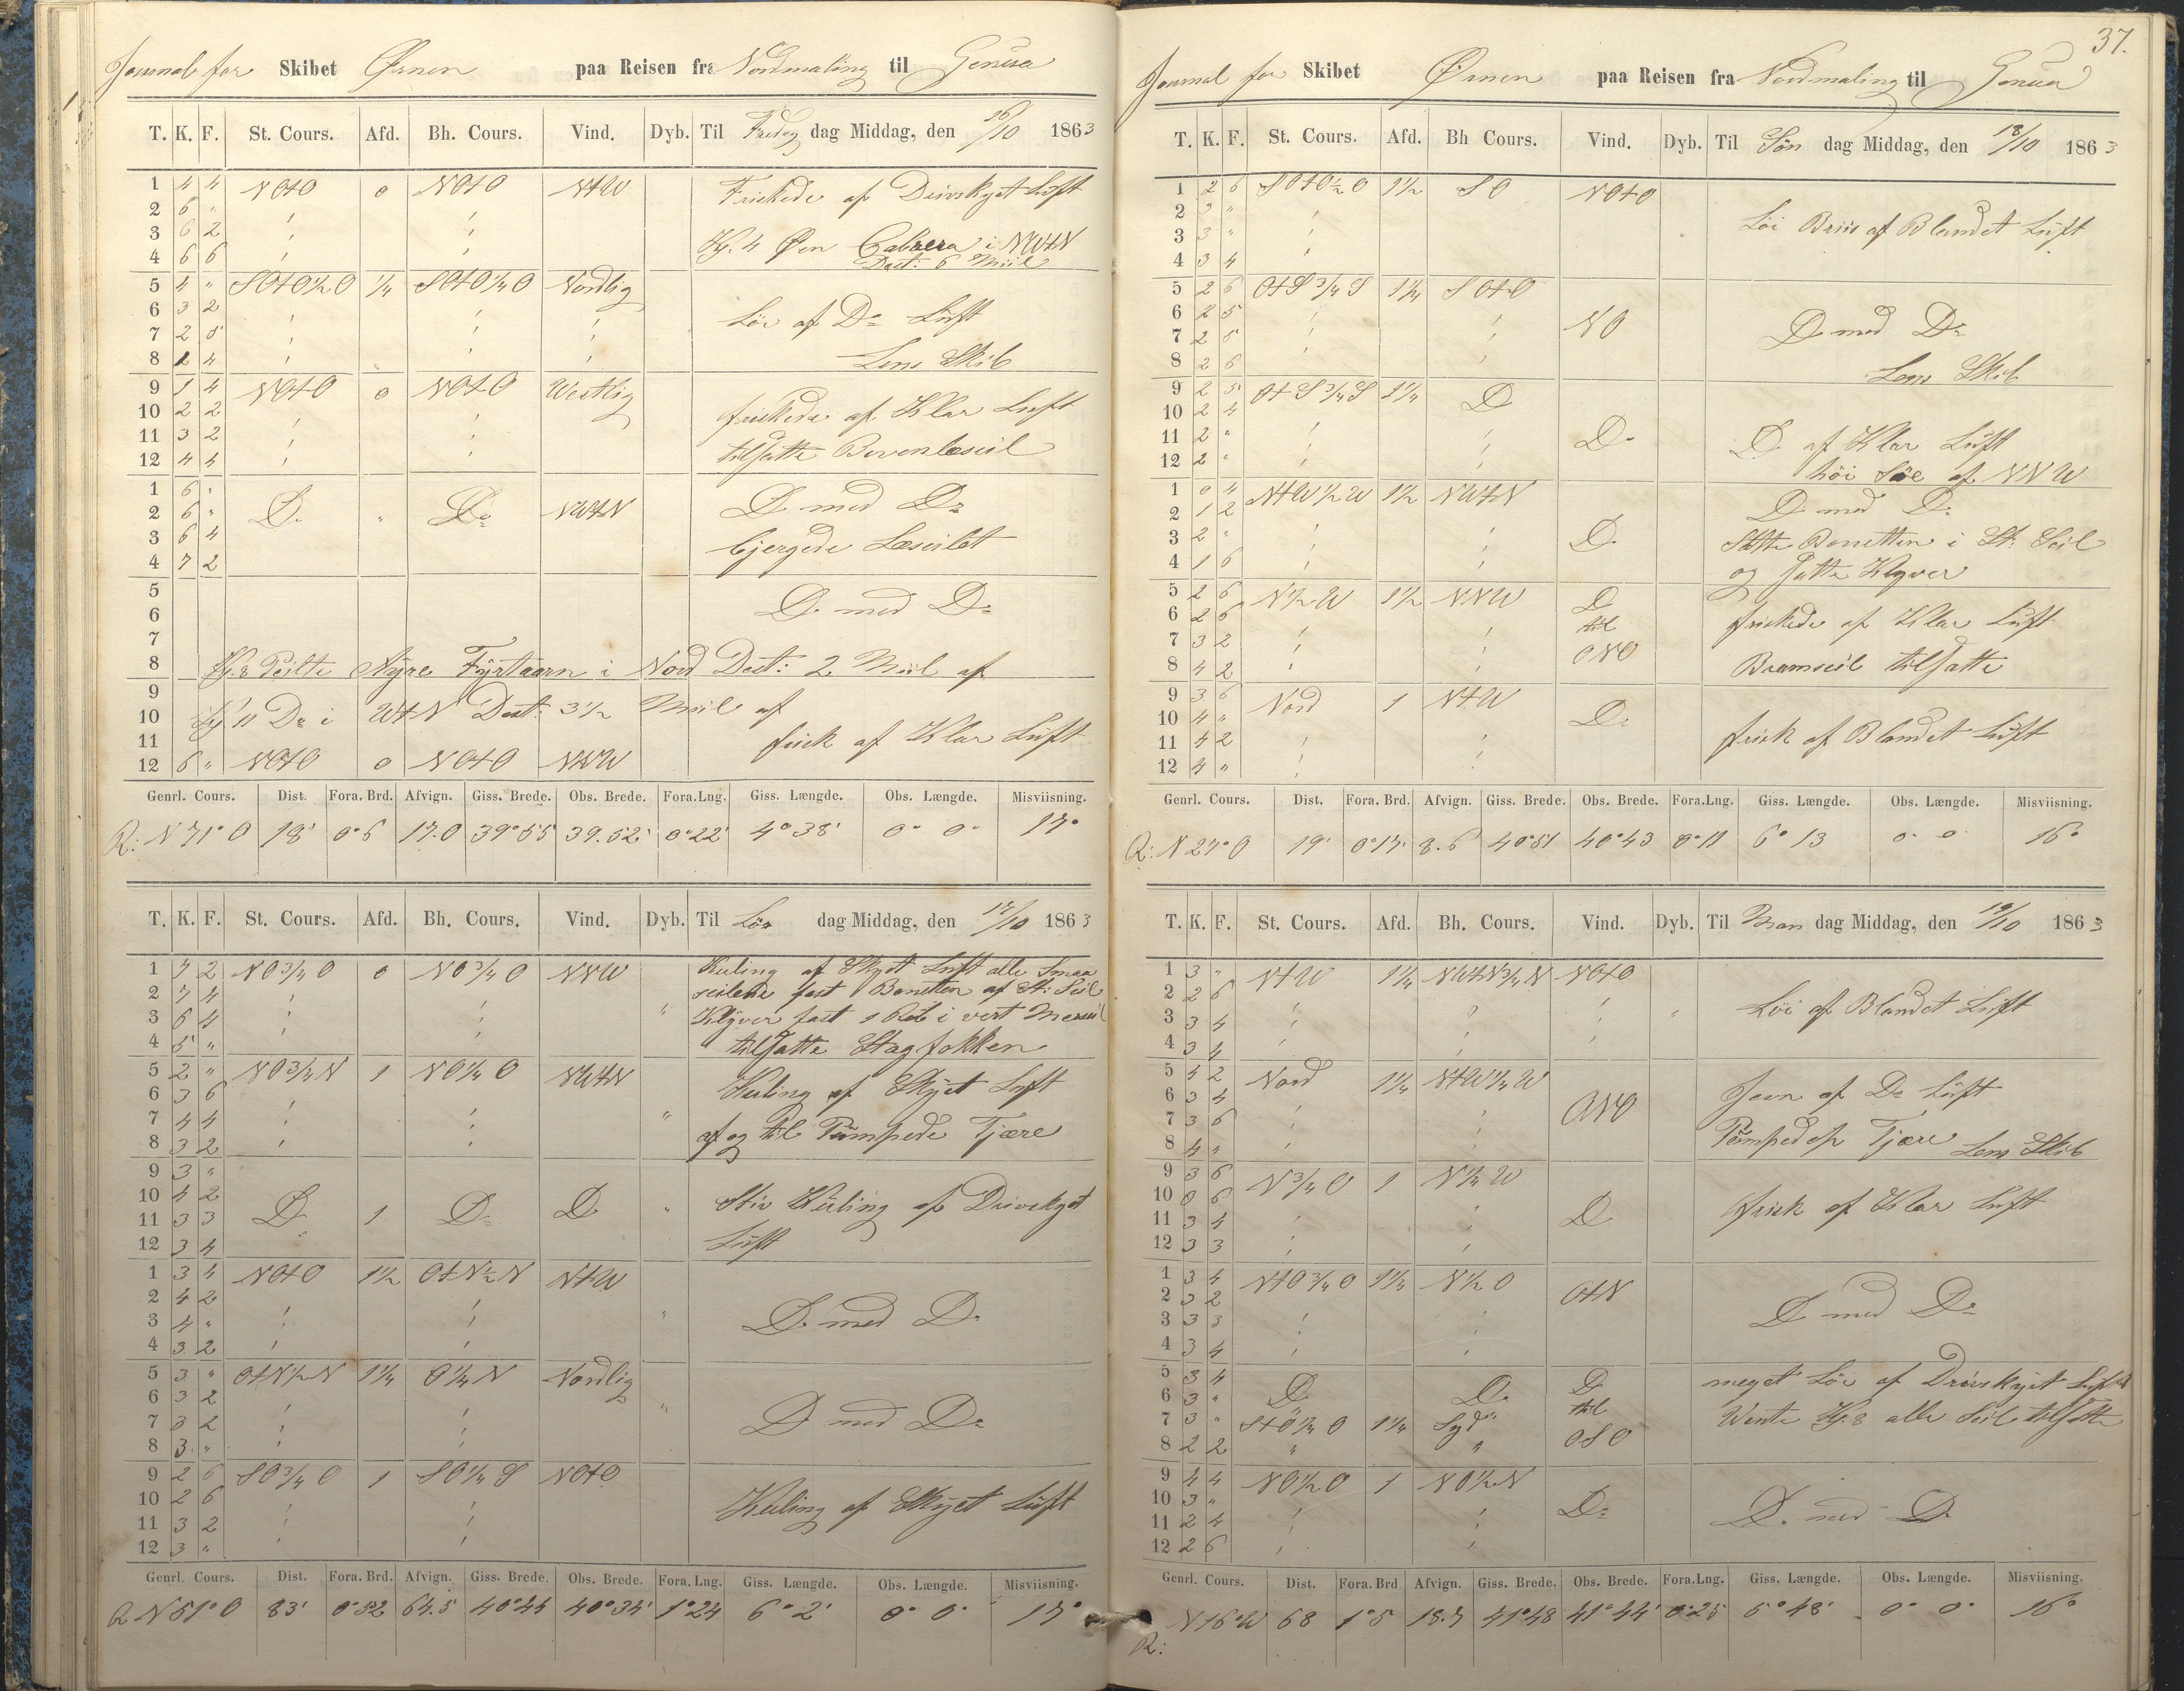 Journal for Skibet Ørnen paa Reisen fra Nordmaling til Genua
T. K. F. St. Cours. Afd. Bh. Cours. Vind. Dyb. Til Fredag dag Middag, den 16/10 1863
1 4 4 NOtO 0 NOtO NtW Friskede af Drivskyet Luft
2 6 "
3 6 2 Kl. 4 Øen Cabrera i NWtN
4 6 6 Dest: 6 Miil
5 4 " SOtO½O ¼ SOtO¼O Nordlig
6 3 2 Løi af Do Luft
7 2 5
8 2 4 Lens Skib
9 1 4 NOtO 0 NOtO Westlig
10 2 2 friskede af Klar Luft
11 3 2 tilsatte Bovenlæseil
12 4 4
1 6 "
2 6 " Do " Do NWtN Do med Do
3 6 4 bjergede Læseilet
4 7 2
5
6 Do med Do
7
8 Kl. 8 Peilte Fyrtaarn i Nord Dest: 2 Miil af
9
10 Kl 11 Do i WtN Dest: 3½ Miil af
11 frisk af Klar Luft
12 6 " NOtO 0 NOtO NNW
Genrl. Cours. Dist. Fora. Brd. Afvign. Giss. Brede. Obs. Brede. Fora.Lng. Giss. Længde. Obs. Længde. Misviisning.
R: N 71° O 18' 0°6 17.0 39°55 39.52' 0°22' 4°38' 0° 0° 17°
T. K. F. St. Cours. Afd. Bh. Cours. Vind. Dyb. Til Lør dag Middag, den 17/10 1863
1 7 2 NO¾O 0 NO¾O NNW Kuling af Skyet Luft alle Smaa
2 7 4 seilene fast Bonetten af St: Seil
3 6 4 " Klyver fast 1 Reb i vert Mersseil
4 5 " tilsatte Stagfokken
5 2 " NO¾N 1 NO¼O NWtN
6 3 6 Kuling af Skyet Luft
7 4 4 "
8 3 2 af og til Pumpede Tjære
9 3 "
10 4 2 Stiv Kuling af Drivskyet
11 3 3 Do 1 Do Do "
12 3 4 Luft
1 3 4 NOtO 1½ OtN½N NtW
2 4 2
3 4 " " Do med Do
4 3 2
5 3 " OtN½N 1¼ O¼N Nordlig
6 3 2 "
7 3 2 Do med Do
8 3 "
9 2 6 SO¾O 1 SO¼S NOtO
10 2 6 Kuling af Skyet Luft
11 3 2
12 3 "
Genrl. Cours. Dist. Fora. Brd. Afvign. Giss. Brede. Obs. Brede. Fora.Lng. Giss. Længde. Obs. Længde. Misviisning.
R N 51° O 83' 0°52 64.5 40°44 40°34' 1°24 6°2' 0° 0° 17°
37.
Journal for Skibet Ørnen paa Reisen fra Nordmaling til Genua
T. K. F. St. Cours. Afd. Bh Cours. Vind. Dyb. Til Søn dag Middag, den 18/10 1863
1 2 6 SOtO½O 1½ SO NOtO
2 3 " Løi Briis af Blandet Luft
3 3 " "
4 3 4
5 2 6 OtS¾S 1¼ SOtO
6 2 5 NO Do med Do
7 2 5
8 2 6 Lens Skib
9 2 5 OtS¾S 1¼ Do
10 2 4
11 2 " Do Do af Klar Luft
12 2 " høi Søe af NNW
1 0 4 NtW½W 1½ NWtN Do med Do
2 1 2
3 2 " Do Satte Bonetten i St. Seil
4 1 6 og Satte Klyver
5 2 6 N½W 1½ NNW Do
6 2 6 til friskede af Klar Luft
7 3 2 ONO
8 4 2 Bramseil tilsatte
9 3 6 Nord 1 NtW
10 4 " Do
11 4 2 frisk af Blandet Luft
12 4 "
Genrl. Cours. Dist. Fora. Brd. Afvign. Giss. Brede. Obs. Brede. Fora.Lng. Giss. Længde. Obs. Længde. Misviisning.
R: N 27° O 19' 0°17' 8.6 40°51 40°43 0°11 6°13 0° 0° 16°
T. K. F. St. Cours. Afd. Bh. Cours. Vind. Dyb. Til Man dag Middag, den 19/10 1863
1 3 " NtW 1¼ NWtN¾N NOtO
2 2 6 Løi af Blandet Luft
3 3 4 "
4 3 4
5 4 2 Nord 1¼ NtW¼W
6 3 4 ONO Jevn af Do Luft
7 3 6
8 4 " Pumpede Tjære Lens Skib
9 3 6 N¾O 1 N¼W
10 0 6 frisk af Klar Luft
11 3 4 Do
12 3 3
1 3 4 NtO¾O 1¼ N½O OtN
2 3 2
3 3 3 Do med Do
4 3 4
5 3 4 Do meget Løi af Drivskyet Luft
6 3 " Do Do til
7 3 " StO¼O 1¼ Syd Wente Kl. 8 alle Seil tilsatte
8 2 2 " " OSO
9 4 4 NO½O 1 NO½N
10 3 " Do Do med Do
11 2 4
12 2 6
Genrl. Cours. Dist. Fora. Brd. Afvign. Giss. Brede. Obs. Brede. Fora.Lng. Giss. Længde. Obs. Længde. Misviisning.
R: N 16° W 68 1°5 18.7 41°48 41°44' 0°25 5°48' 0° 0° 16°